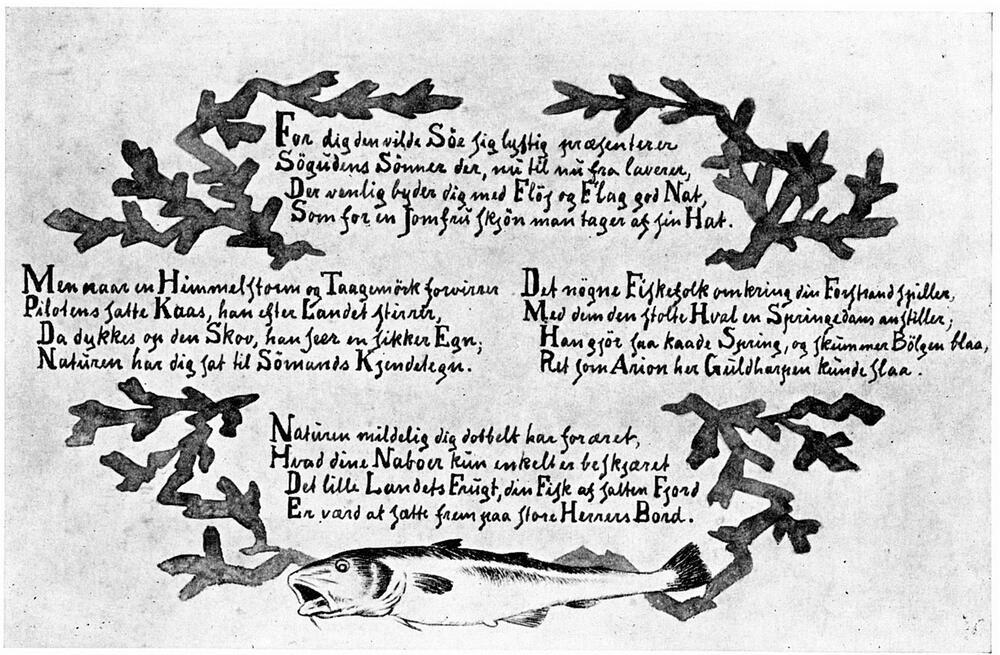 For dig den vilde Söe sig lystig præsenterer
Sögudens Sönner der, nu til nu fra laverer,
Der venlig byder dig med Flöj og Flag god Nat,
Som for en Jomfru skjön man tager af sin Hat.
Men naar en Himmelstorm og Taagemörk forvirrer
Pilotens satte Kaas, han efter Landet stirrer,
Da dykkes op den Skov, han seer en sikker Egn;
Naturen har dig sat til Sömands Kjendetegn.
Det nögne Fiskefolk omkring din Forstrand spiller,
Med dem den stolte Hval en Springedans anstiller;
Han gjör saa kaade Spring, og skummer Bölgen blaa,
Ret som Arion her Guldharpen kunde slaa.
Naturen mildelig dig dobbelt har foræret,
Hvad dine Naboer kun enkelt er beskjæret
Det lille Landets Frugt, din Fisk af salten Fjord
Er værd at sætte frem paa store Herrers Bord.